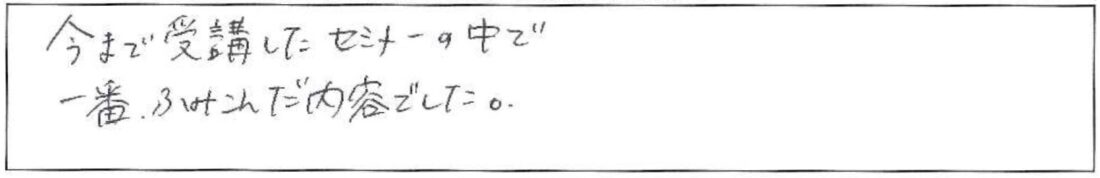 今まで受講したセミナーの中で
一番、ふみこんだ内容でした。